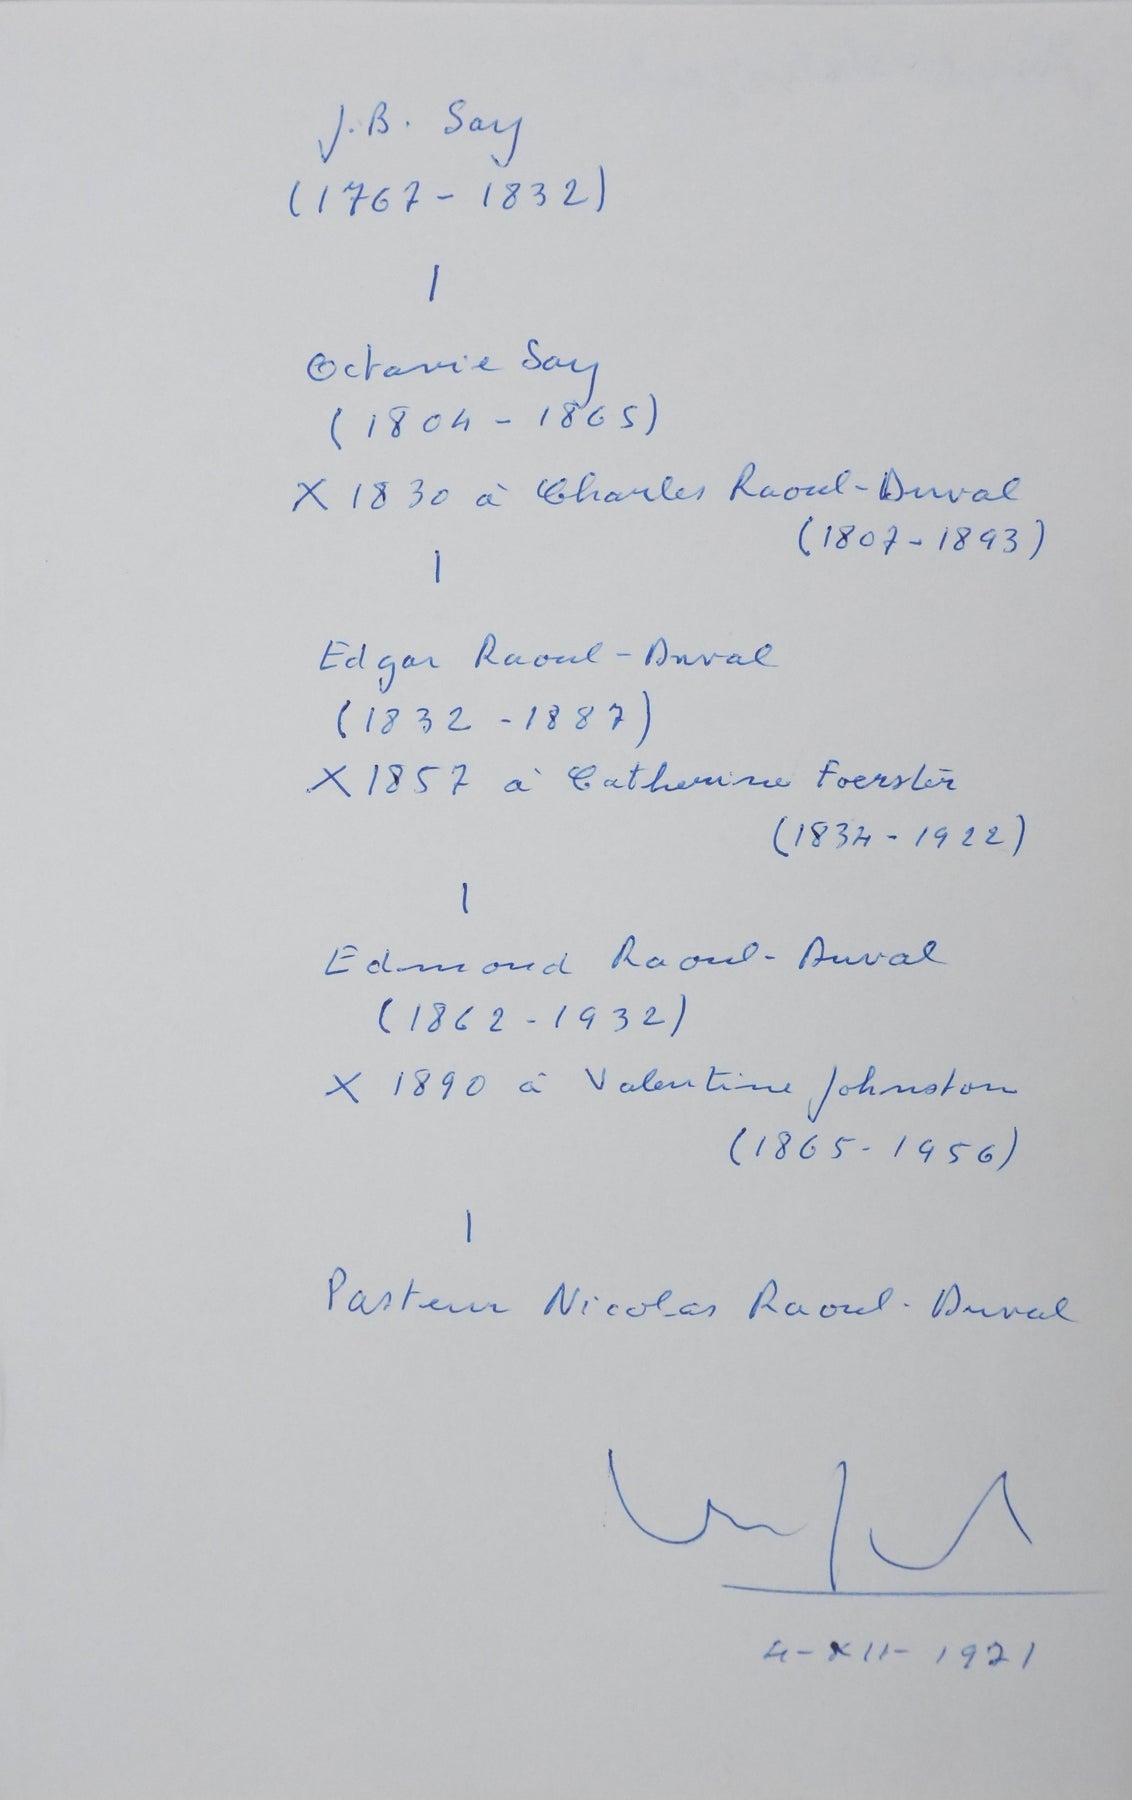 J.B. Say
(1767 - 1832)
|
Octavie Say
(1804 - 1865)
X 1830 à Charles Raoul-Duval
(1807 - 1893)
|
Edgar Raoul-Duval
(1832 - 1887)
X 1857 à Catherine Foerster
(1834 - 1922)
|
Edmond Raoul-Duval
(1862 - 1932)
X 1890 à Valentine Johnston
(1865 - 1956)
|
Pasteur Nicolas Raoul-Duval
4-XII-1971